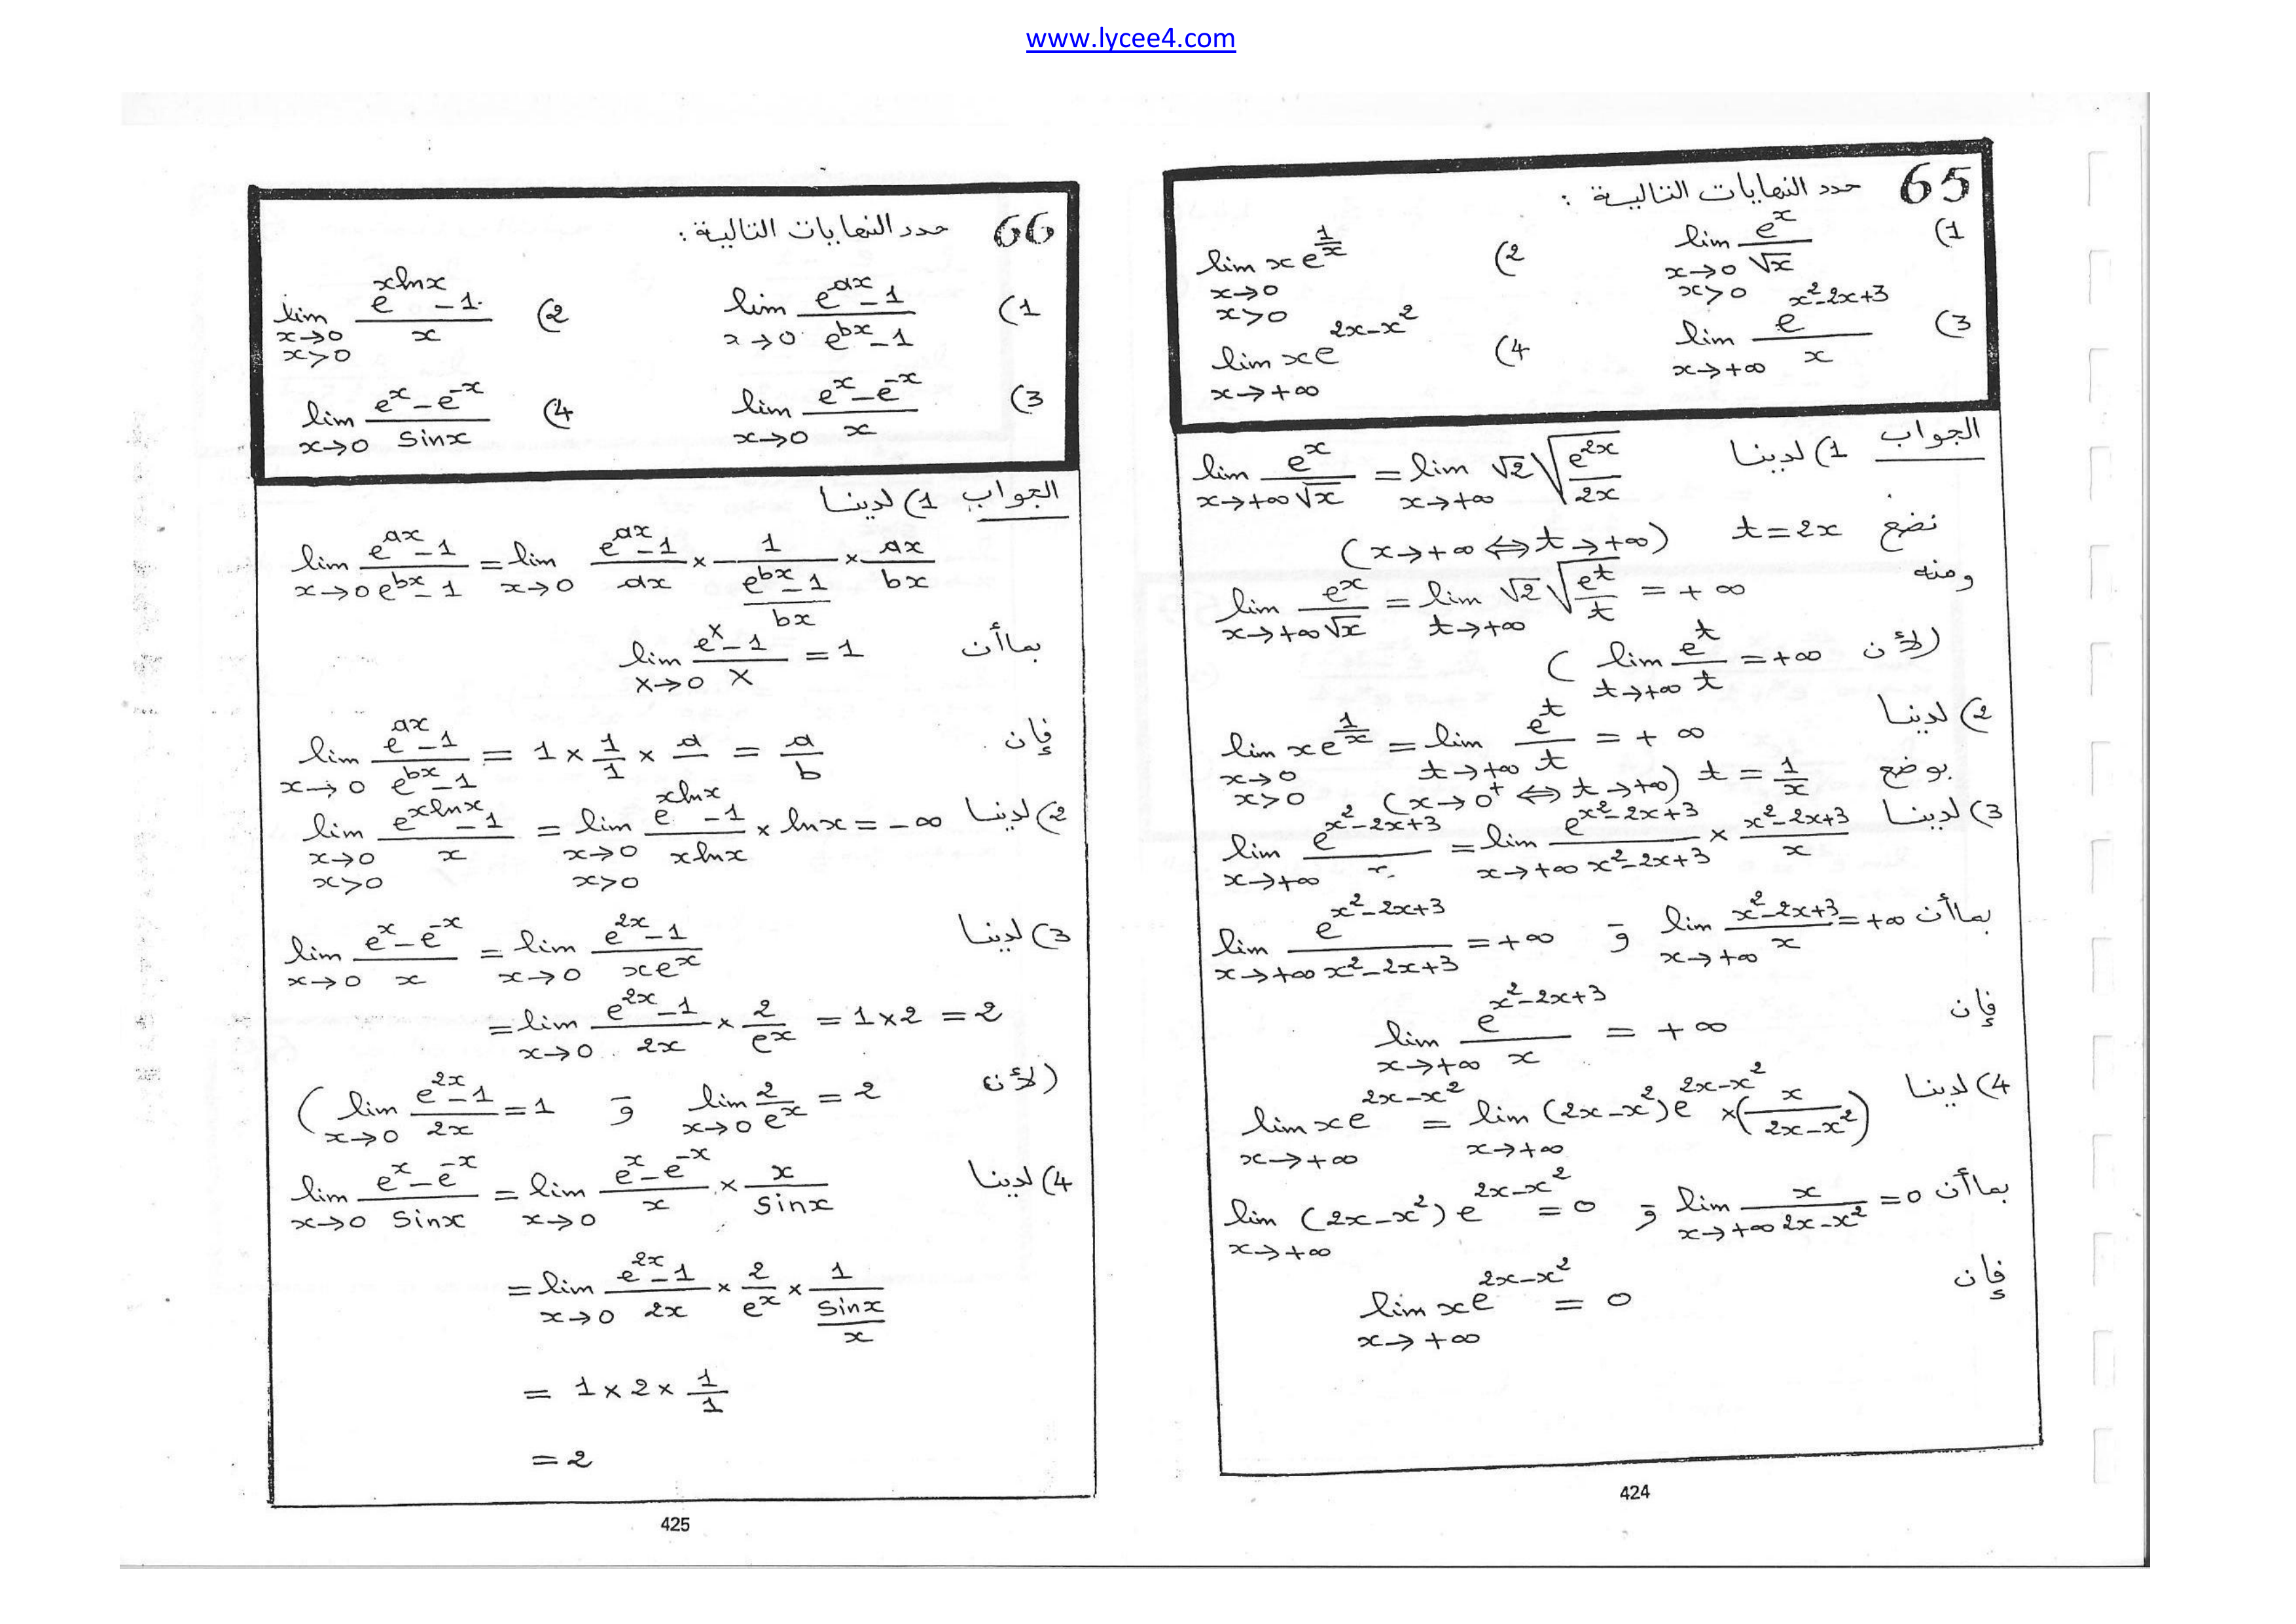 www.lycee4.com
65 حدد النهايات التالية :
1) lim_{x→0, x>0} e^x/√x    2) lim_{x→0, x>0} x e^{1/x}
3) lim_{x→+∞} e^{x²-2x+3}/x    4) lim_{x→+∞} x e^{2x-x²}
الجواب 1) لدينا lim_{x→+∞} e^x/√x = lim_{x→+∞} √2 √(e^{2x}/2x)
نضع t = 2x (x→+∞ ⇔ t→+∞)
ومنه lim_{x→+∞} e^x/√x = lim_{t→+∞} √2 √(e^t/t) = +∞
(لأن lim_{t→+∞} e^t/t = +∞)
2) لدينا lim_{x→0, x>0} x e^{1/x} = lim_{t→+∞} e^t/t = +∞
بوضع t = 1/x (x→0⁺ ⇔ t→+∞)
3) لدينا lim_{x→+∞} e^{x²-2x+3}/x = lim_{x→+∞} e^{x²-2x+3}/(x²-2x+3) × (x²-2x+3)/x
بما أن lim_{x→+∞} (x²-2x+3)/x = +∞ و lim_{x→+∞} e^{x²-2x+3}/(x²-2x+3) = +∞
فإن lim_{x→+∞} e^{x²-2x+3}/x = +∞
4) لدينا lim_{x→+∞} x e^{2x-x²} = lim_{x→+∞} (2x-x²) e^{2x-x²} × (x/(2x-x²))
بما أن lim_{x→+∞} x/(2x-x²) = 0 و lim_{x→+∞} (2x-x²) e^{2x-x²} = 0
فإن lim_{x→+∞} x e^{2x-x²} = 0
424
66 حدد النهايات التالية :
1) lim_{x→0} (e^{ax}-1)/(e^{bx}-1)    2) lim_{x→0, x>0} (e^{xlnx}-1)/x
3) lim_{x→0} (e^x-e^{-x})/x    4) lim_{x→0} (e^x-e^{-x})/sinx
الجواب 1) لدينا
lim_{x→0} (e^{ax}-1)/(e^{bx}-1) = lim_{x→0} (e^{ax}-1)/ax × 1/((e^{bx}-1)/bx) × ax/bx
بما أن lim_{X→0} (e^X-1)/X = 1
فإن lim_{x→0} (e^{ax}-1)/(e^{bx}-1) = 1 × 1/1 × a/ = a/b
2) لدينا lim_{x→0, x>0} (e^{xlnx}-1)/x = lim_{x→0, x>0} (e^{xlnx}-1)/(xlnx) × lnx = -∞
3) لدينا lim_{x→0} (e^x-e^{-x})/x = lim_{x→0} (e^{2x}-1)/(xe^x)
= lim_{x→0} (e^{2x}-1)/2x × 2/e^x = 1×2 = 2
(لأن lim_{x→0} 2/e^x = 2 و lim_{x→0} (e^{2x}-1)/2x = 1)
4) لدينا lim_{x→0} (e^x-e^{-x})/sinx = lim_{x→0} (e^x-e^{-x})/x × x/sinx
= lim_{x→0} (e^{2x}-1)/2x × 2/e^x × 1/(sinx/x)
= 1 × 2 × 1/1
= 2
425